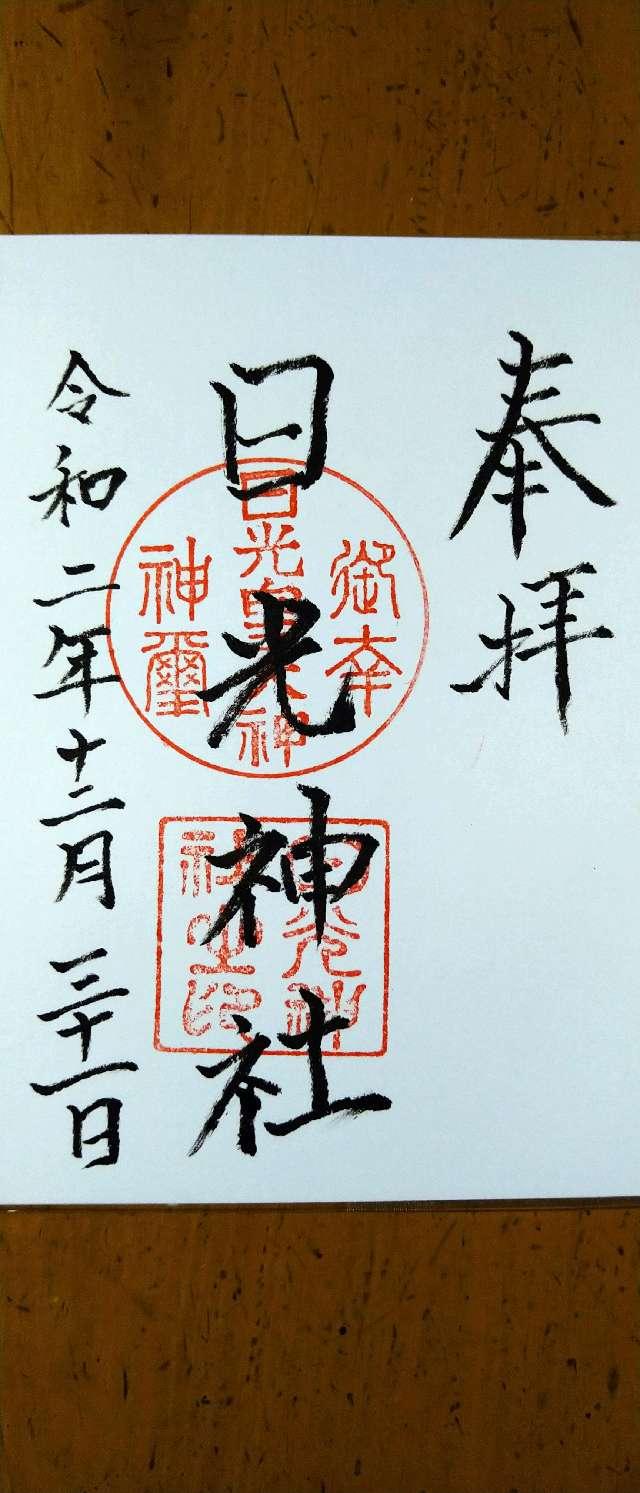 奉拝
日光神社
御幸
日光皇大神
神璽
日光神
社之印
令和二年十二月三十一日